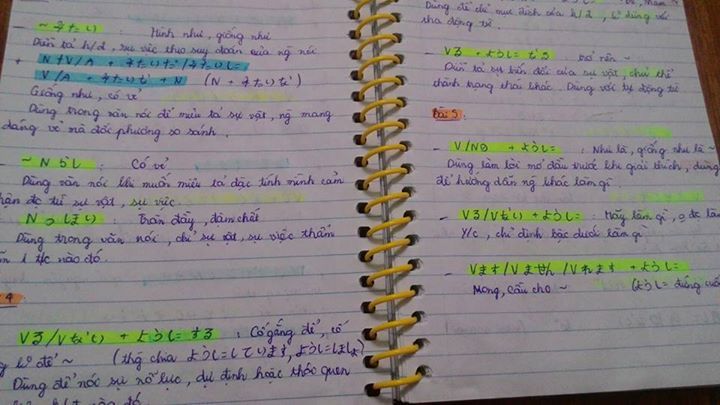 ~ みたい : Hình như, giống như
Diễn tả h/đ, sự việc theo suy đoán của ng nói
+ N/V/A + みたいだ/みたいに
V/A + みたいな + N (N + みたいな)
Giống như, có vẻ
Dùng trong văn nói để miêu tả sự vật, ng mang
dáng vẻ mà đối phương so sánh.
~ N らしい : Có vẻ
Dùng văn nói khi muốn miêu tả đặc tính mình cảm
nhận đc từ sự vật, sự việc.
N っぽい : Tràn đầy, đậm chất
Dùng trong văn nói, chỉ sự vật, sự việc thấm
1 t/c nào đó.
4
Vる/Vない + ようにする : Cố gắng để, cố
để ~ (thg chia ようにしています, ようにしましょ
Dùng để nói sự nỗ lực, dự định hoặc thói quen
nào đó
Dùng để chỉ mục đích của h/đ, dùng với
tha động từ.
- Vる + ようになる : Trở nên ~
Diễn tả sự biến đổi của sự vật, chủ thể
thành trạng thái khác. Dùng với tự động từ
Bài 5:
- V/Nの + ように : Như là, giống như là ~
Dùng làm lời mở đầu trước khi giải thích, dùng
để hướng dẫn ng khác làm gì
- Vる/Vない + ように : Hãy làm gì, o đc làm
Y/c, chỉ định bậc dưới làm gì
- Vます/Vません/Vれます + ように
Mong, cầu cho ~ (ように đứng cuối